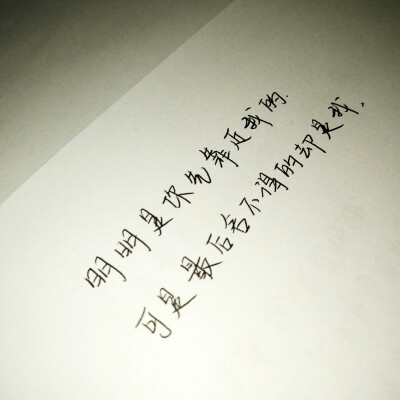 明明是你先靠近我的.
可是最后舍不得的却是我.